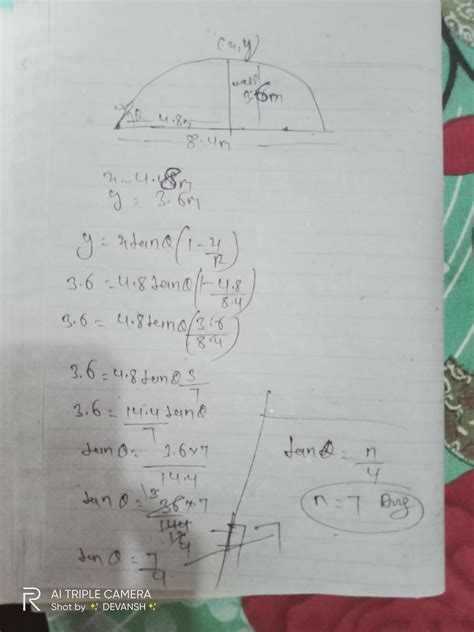 (x,y)
wall
3.6m
θ
4.8m
8.4m
x = 4.8m
y = 3.6m
y = xtanθ(1-x/R)
3.6 = 4.8tanθ(1-4.8/8.4)
3.6 = 4.8tanθ(3.6/8.4)
3.6 = 4.8tanθ 3/7
3.6 = 14.4/7 tanθ
tanθ = 3.6×7/14.4
tanθ = 36×7/144
tanθ = 7/4
tanθ = n/4
n = 7 Ans
AI TRIPLE CAMERA
Shot by ✨ DEVANSH ✨